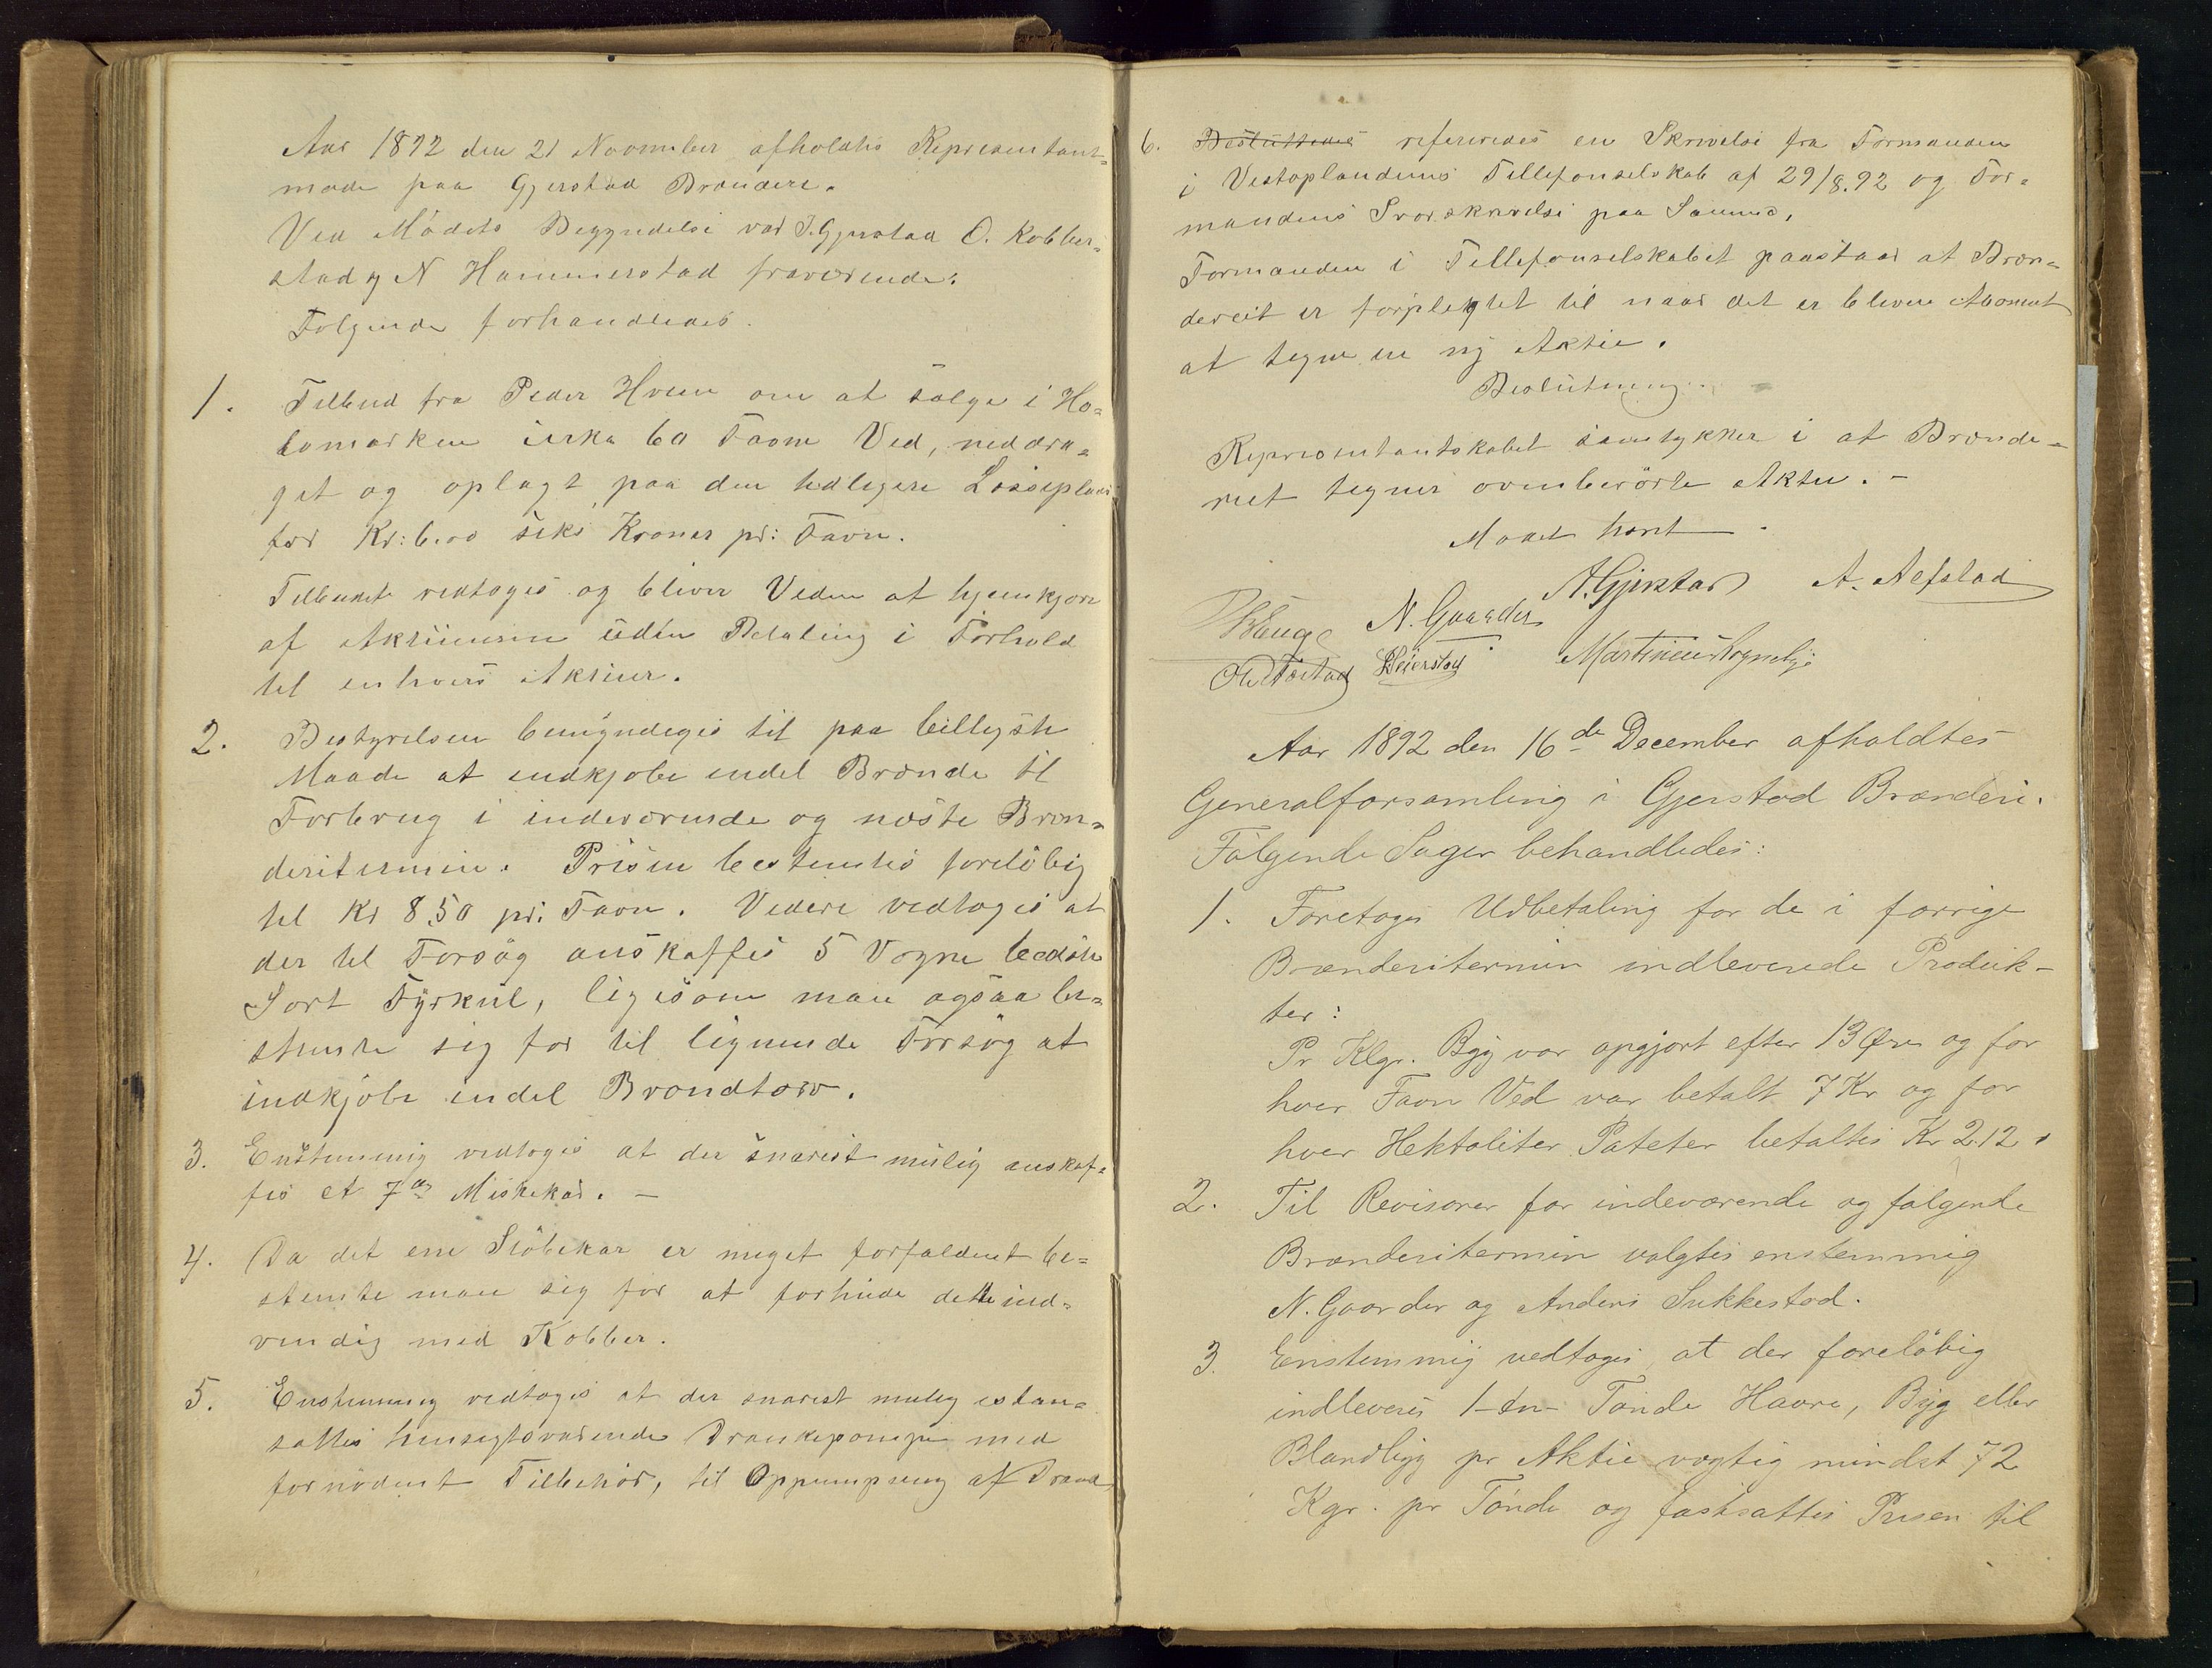 Aar 1892 den 21 Novomber afholdtes Repræsentant-
møde paa Gjerstad Brænderi.
Ved Mödets Begyndelse var I. Gjerstad O. Kobber-
stad og N Hammerstad fraværende.
Følgende forhandledes.
1. Tilbud fra Peder Hveem om at sælge i Ho-
lamarken cirka 60 Favne Ved, neddra-
get og oplagt paa den tidligere Lösseplads
for Kr: 6.00 seks Kroner pr: Favn.
Tilbudet vedtoges og bliver Veden at hjemkjøre
af Aktiinærerne uden Betaling i Forhold
til enhvers Aktier.
2. Bestyrelsen bemyndiges til paa billigste
Maade at indkjøbe endel Brænde til
Forbrug i indeværende og næste Bræn-
deritermin. Prisen bestemtes forelöbig
til Kr 8,50 pr: Favn. Videre vedtoges at
der til Forsög anskaffes 5 Vogne bedste
Sort Fyrkul, ligesom man ogsaa be-
stemte sig for til lignende Forsög at
indkjöbe endel Brændtorv.
3. Enstemmig vedtoges at der snarest mulig anskaf-
fes et 7de Meskekar. -
4. Da det ene Stöbekar er meget forfaldent be-
stemte man sig for at forhude dette ind-
vendig med Kobber.
5. Enstemmig vedtoges at der snarest mulig istand-
sattes hensigtsvarende Drankepompe med
fornödent Tilbehör, til Oppumpning af Drank
6. Besluttedes refereredes en Skrivelse fra Formanden
i Vestoplandenes Tellefonselskab af 29/8.92 og For-
mandens Svarskrivelse paa Samme,
Formanden i Tellefonselskabet paastaar at Bræn-
deriet er forpligtet til naar det er bleven Abonent
at tegne en ny Aktie.
Beslutning.
Repræsentantskabet samtykker i at Brænde-
riet tegner ovenberörte Aktie. -
Mødet hævet
A. Gjerstad A. Alfstad
N. Gaarder
Aar 1892 den 16de December afholdtes
Generalforsamling i Gjerstad Brænderi.
Følgende Sager behandledes:
1. Foretoges Udbetaling for de i forrige
Brænderitermin indleverede Produk-
ter:
Pr Klgr. Byg var opgjort efter 13 Øre og for
hver Favn Ved var betalt 7 Kr og for
hver Hektoliter Poteter betaltes Kr 2.12.
2. Til Revisorer for indeværende og følgende
Brænderitermin valgtes enstemmig
N. Gaarder og Anders Sukkestad.
3. Enstemmig vedtoges at der forelöbig
indleveres 1-en- Tønde Havre, Byg eller
Blandbyg pr Aktie vægtig mindst 72
Kgr. pr Tønde og fastsattes Prisen til